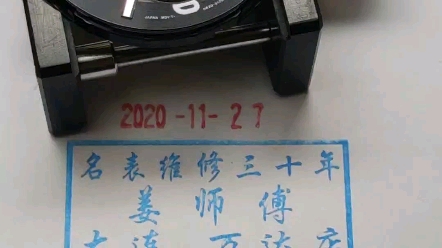 2020-11-27
名表维修三十年
姜师傅
大连 万达店